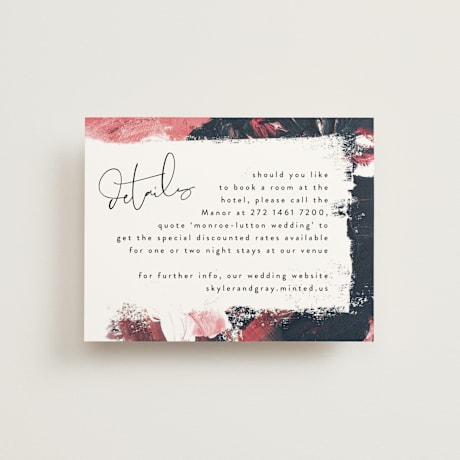 details
should you like
to book a room at the
hotel, please call the
Manor at 272 1461 7200,
quote ‘monroe-lutton wedding’ to
get the special discounted rates available
for one or two night stays at our venue
for further info, our wedding website
skylerandgray.minted.us